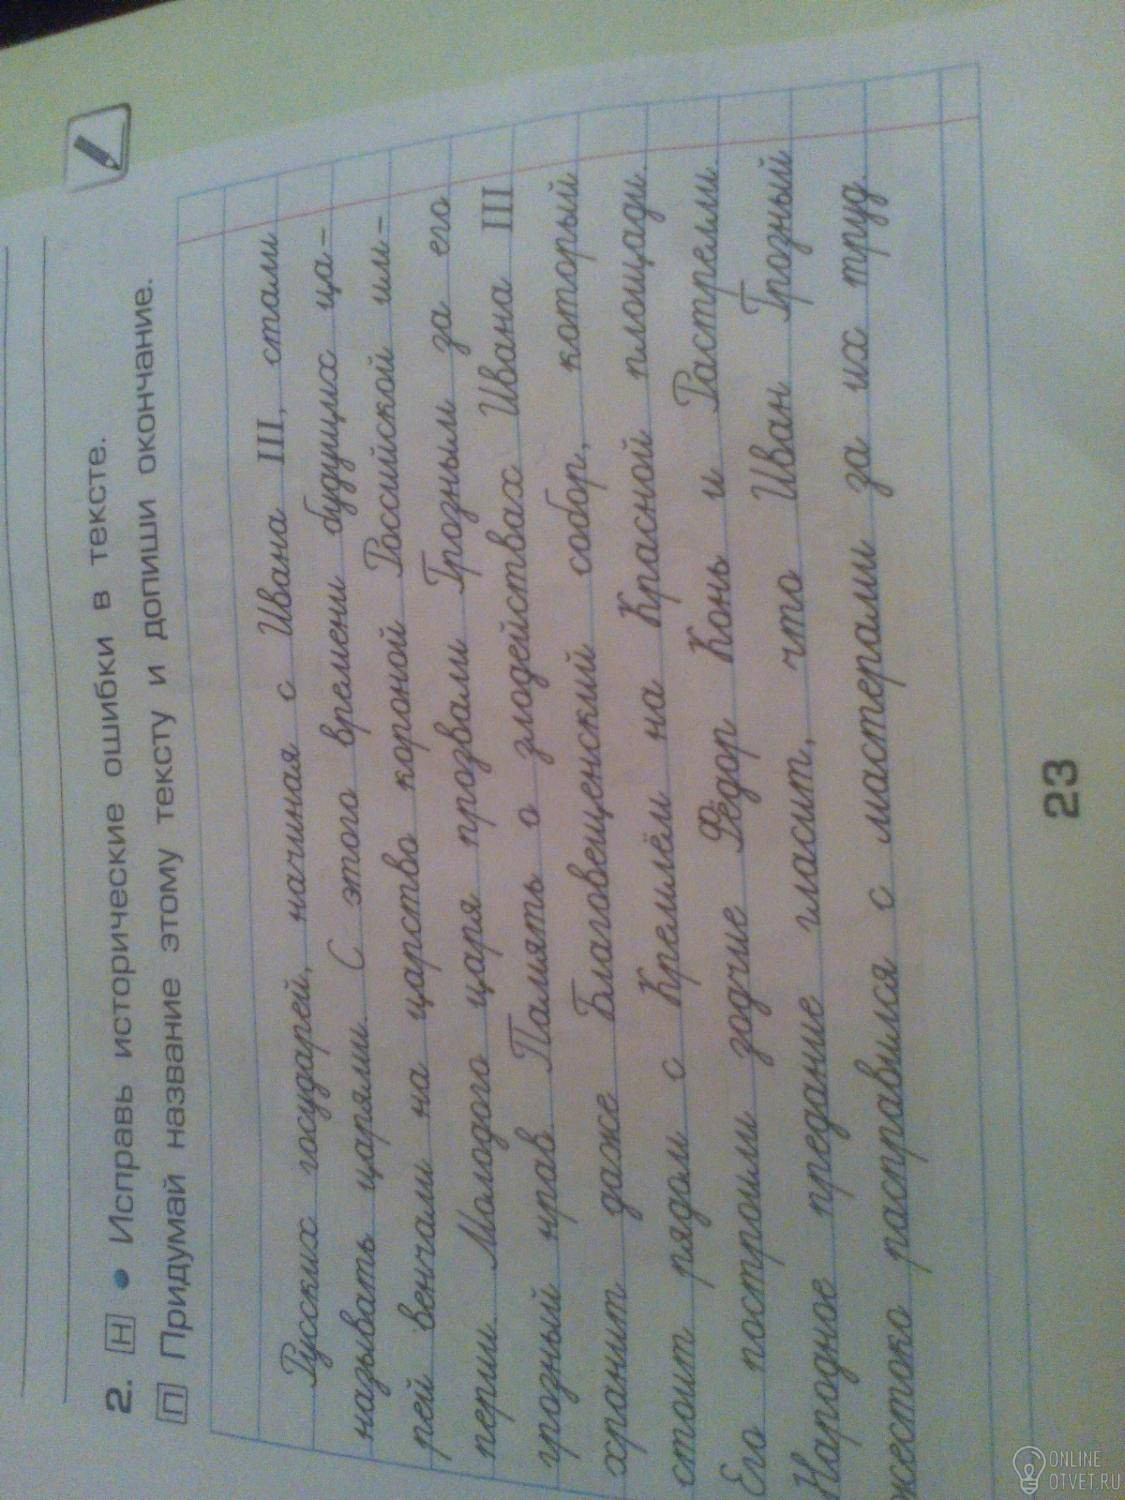 2. Н • Исправь исторические ошибки в тексте.
П Придумай название этому тексту и допиши окончание.
Русских государей, начиная с Ивана III, стали
называть царями. С этого времени будущих ца-
рей венчали на царство короной Российской им-
перии. Молодого царя прозвали Грозным за его
грозный нрав. Память о злодействах Ивана III
хранит даже Благовещенский собор, который
стоит рядом с Кремлём на Красной площади.
Его построили зодчие Фёдор Конь и Растрелли.
Народное предание гласит, что Иван Грозный
жестоко расправился с мастерами за их труд.
23
ONLINE
OTVET.RU